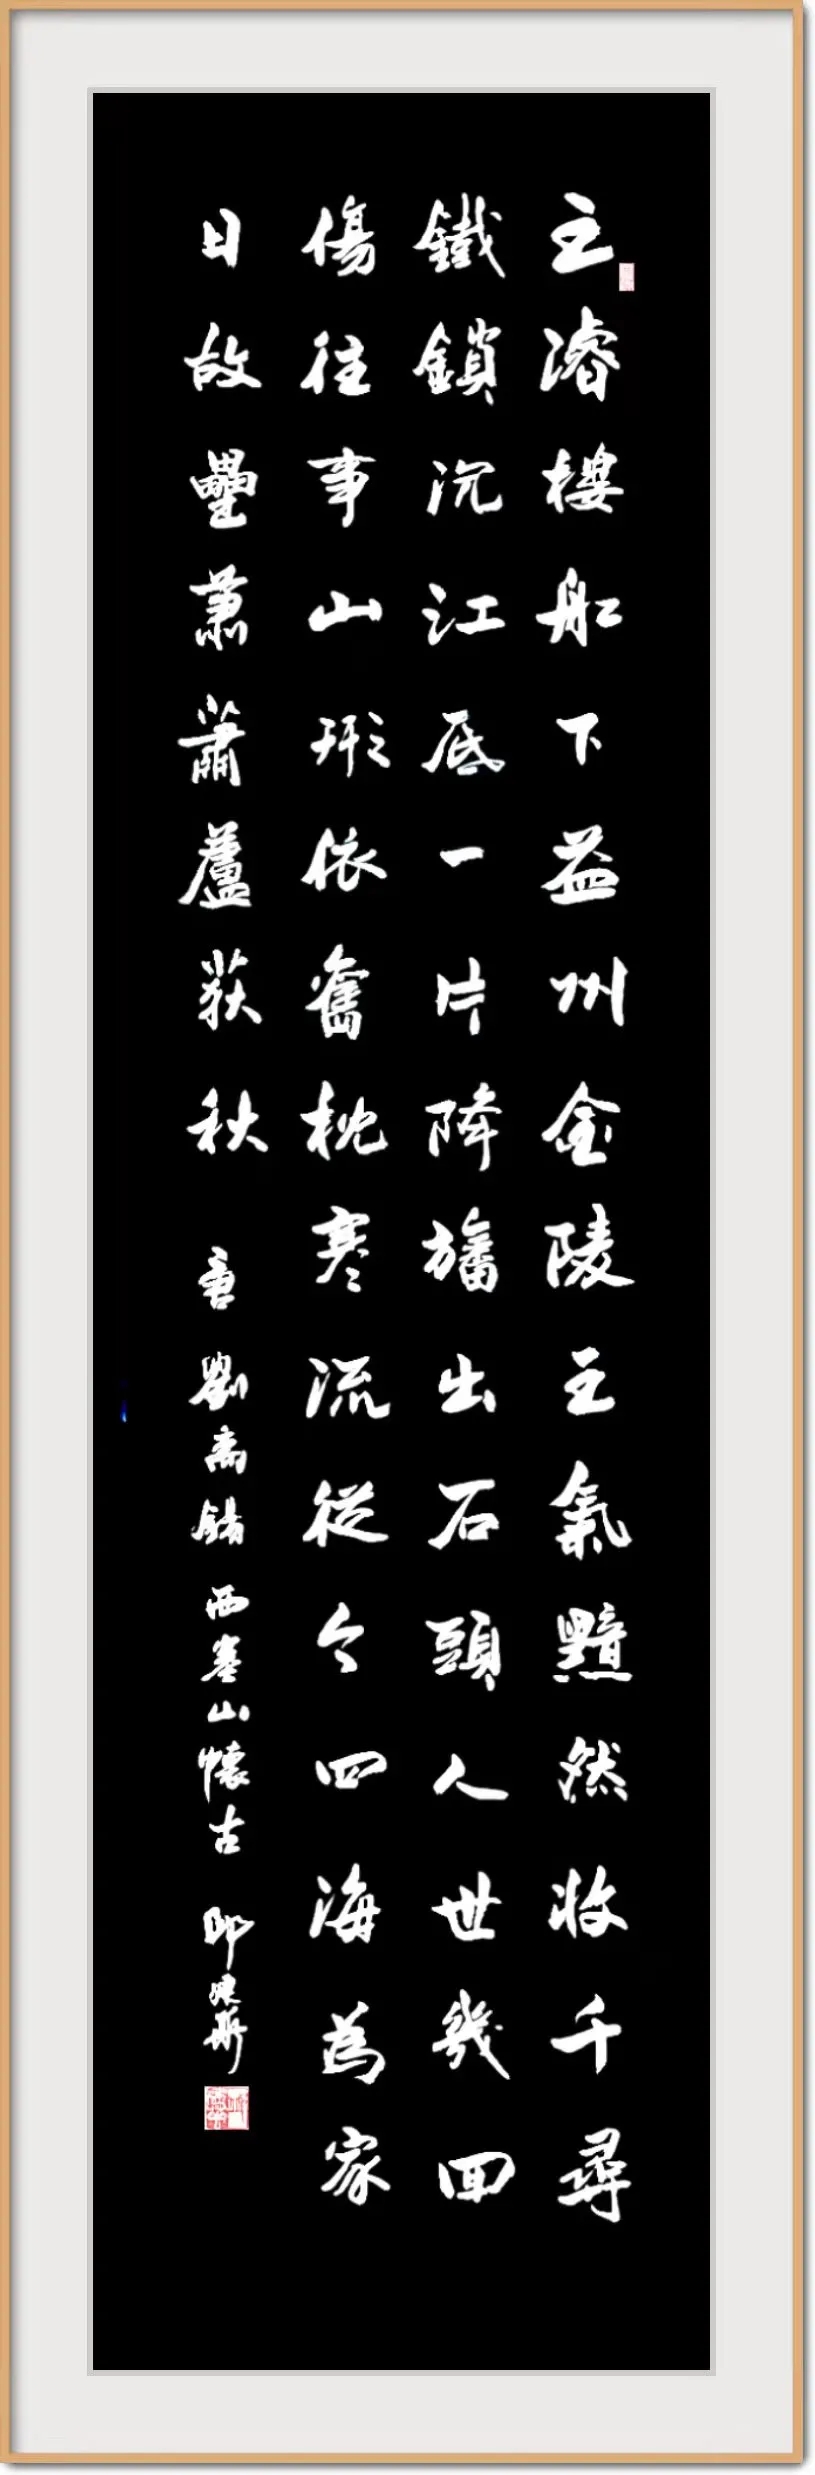 主濬樓船下益州金陵主氣黯然收千尋
鐵鎖沉江底一片降旛出石頭人世幾回
傷往事山形依舊枕寒流從今四海為家
日故壘蕭蕭蘆荻秋 唐 劉禹錫 西塞山懷古